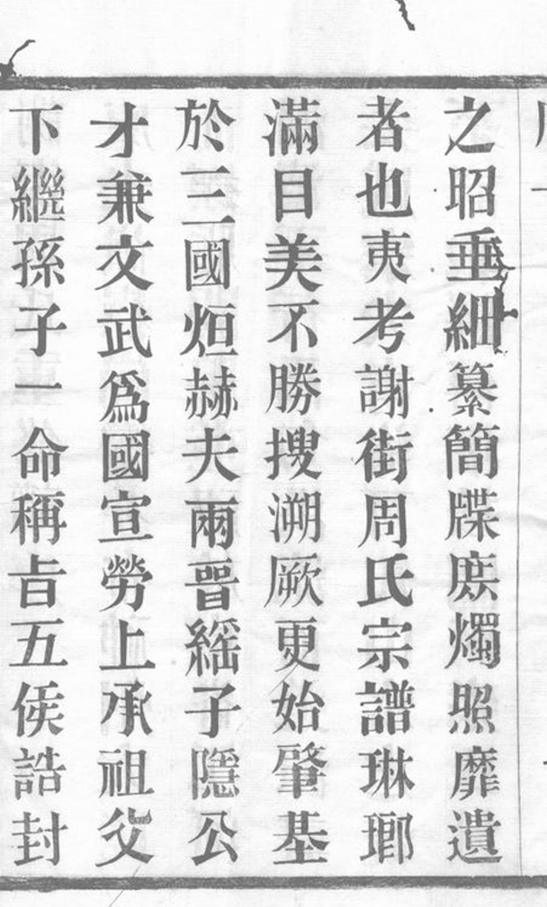 之昭垂細纂簡牒庶燭照靡遺
者也夷考謝街周氏宗譜琳瑯
滿目美不勝搜溯厥更始肇基
於三國烜赫夫兩晉繇子隱公
才兼文武爲國宣勞上承祖父
下繼孫子一命稱旨五侯誥封